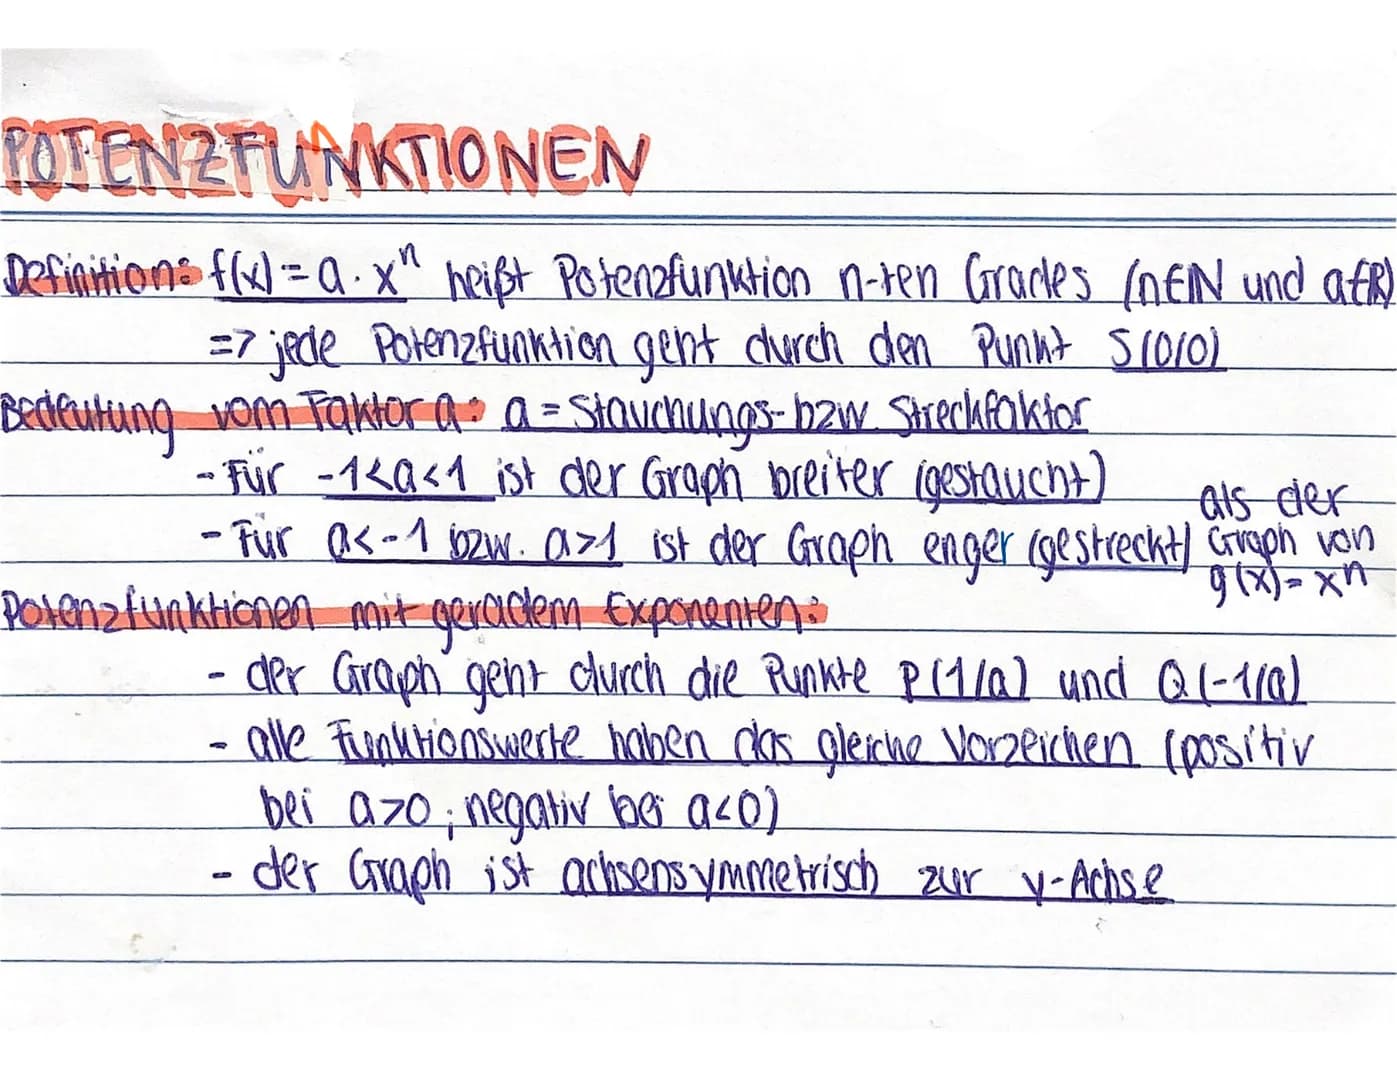 POTENZFUNKTIONEN
Definition: f(x) = a · xⁿ heißt Potenzfunktion n-ten Grades (n∈ℕ und a∈ℝ)
=> jede Potenzfunktion geht durch den Punkt S(0/0)
Bedeutung vom Faktor a: a = Stauchungs- bzw Streckfaktor
- Für -1<a<1 ist der Graph breiter (gestaucht)
- Für a<-1 bzw. a>1 ist der Graph enger (gestreckt)
als der
Graph von
g(x)= xⁿ
Potenzfunktionen mit geradem Exponenten:
- der Graph geht durch die Punkte P(1/a) und Q(-1/a)
- alle Funktionswerte haben das gleiche Vorzeichen (positiv
bei a>0; negativ bei a<0)
- der Graph ist achsensymmetrisch zur y-Achse